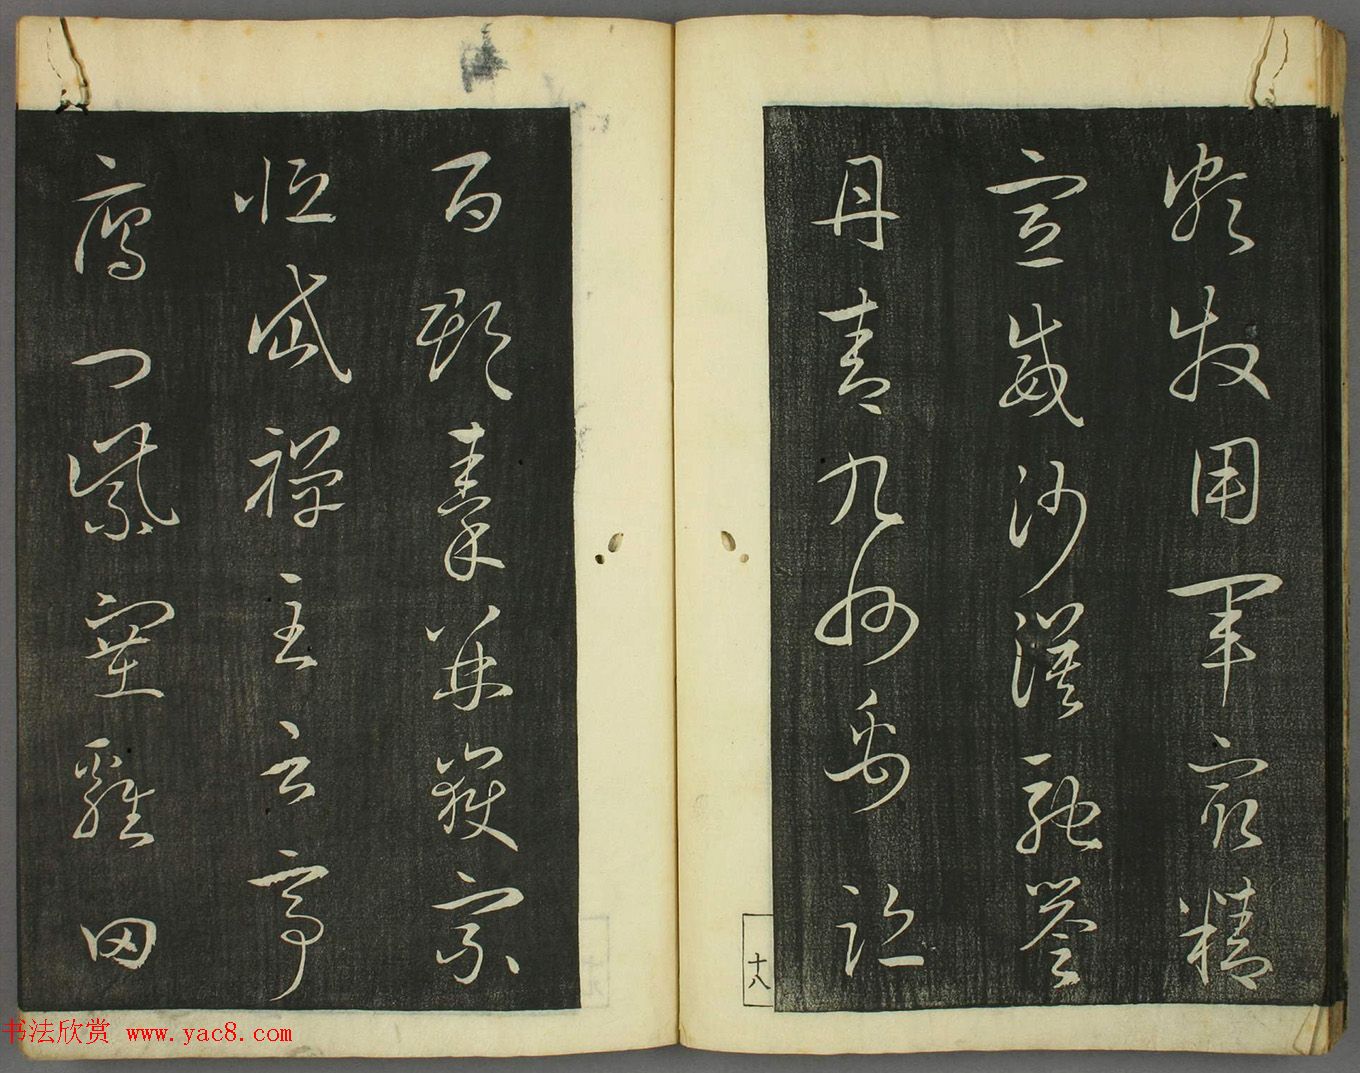 頗牧用軍最精
宣威沙漠馳譽
丹青九州禹跡
十八
百郡秦并嶽宗
恒岱禪主云亭
鴈門紫塞雞田
书法欣赏 www.yac8.com